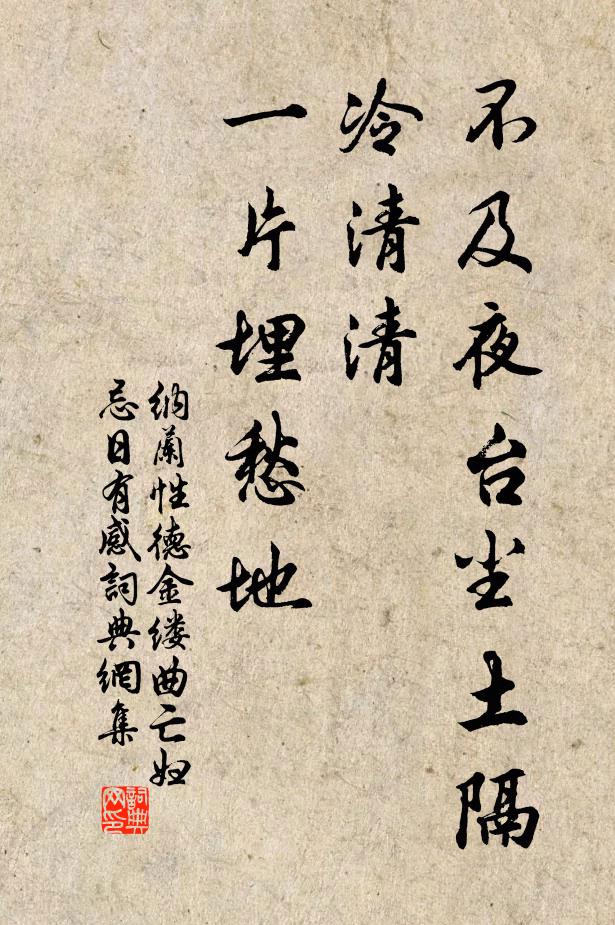 不及夜台尘土隔
冷清清
一片埋愁地
纳兰性德金缕曲亡妇
忌日有感詞典網集
詞典
网印